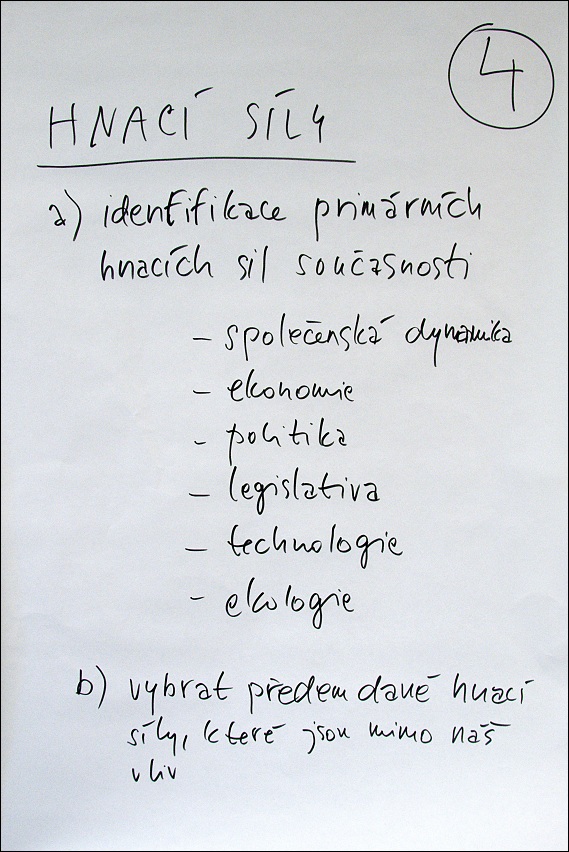 4
HNACÍ SÍLY
a) identifikace primárních
hnacích sil současnosti
– společenská dynamika
– ekonomie
– politika
– legislativa
– technologie
– ekologie
b) vybrat předem dané hnací
síly, které jsou mimo náš
vliv